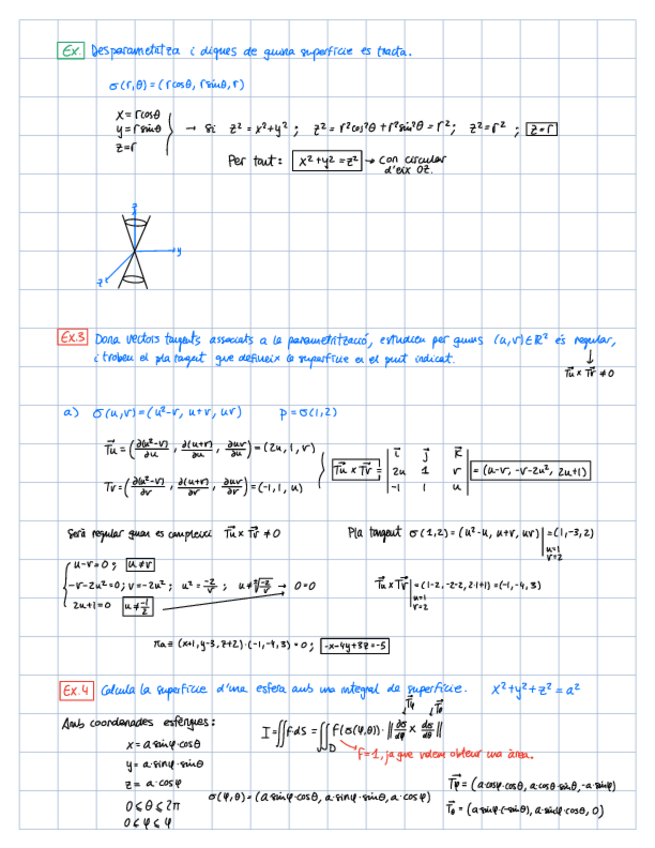 Ex. Desparametritza i digues de quina superfície es tracta.
σ(r,θ)=(rcosθ, rsinθ, r)
x=rcosθ
y=rsinθ
z=r
→ si z²=x²+y² ; z²=r²cos²θ+r²sin²θ=r²; z²=r² ; z=r
Per tant: x²+y²=z² → Con circular
d'eix OZ.
z
y
Ex.3 Dona vectors tangents associats a la parametrització, estudieu per quins (u,v)∈ℝ² és regular,
i trobeu el pla tangent que defineix la superfície en el punt indicat.
↓
Tu x Tv ≠0
a) σ(u,v)=(u²-v, u+v, uv) p=σ(1,2)
Tu=(∂(u²-v)/∂u, ∂(u+v)/∂u, ∂uv/∂u)=(2u,1,v)
Tv=(∂(u²-v)/∂v, ∂(u+v)/∂v, ∂uv/∂v)=(-1,1,u)
Tu x Tv = | i j k
2u 1 v
-1 1 u | =(u-v, -v-2u², 2u+1)
Serà regular quan es compleixi Tu x Tv ≠0
Pla tangent σ(1,2)=(u²-u, u+v, uv)| =(1,-3,2)
u=1
v=2
u-v=0; u≠v
-v-2u²=0; v=-2u²; u²=-2/v ; u≠√-2/v → 0=0
2u+1=0 u≠-1/2
Tu x Tv| =(1-2, -2-2, 2·1+1)=(-1,-4,3)
u=1
v=2
πa≡(x+1, y-3, z+2)·(-1,-4,3)=0; -x-4y+3z=-5
Ex.4 Calcula la superfície d'una esfera amb una integral de superfície. x²+y²+z²=a²
Amb coordenades esfèriques:
x=a·sinφ·cosθ
y=a·sinφ·sinθ
z=a·cosφ
0≤θ≤2π
0≤φ≤φ
Tφ Tθ
I=∬f·dS=∬f(σ(φ,θ))·||∂σ/∂φ x ∂σ/∂θ||
D
f=1, ja que volem obtenir una àrea.
σ(φ,θ)=(a·sinφ·cosθ, a·sinφ·sinθ, a·cosφ)
Tφ=(a·cosφ·cosθ, a·cosθ·sinθ, -a·sinφ)
Tθ=(a·sinφ·(-sinθ), a·sinφ·cosθ, 0)